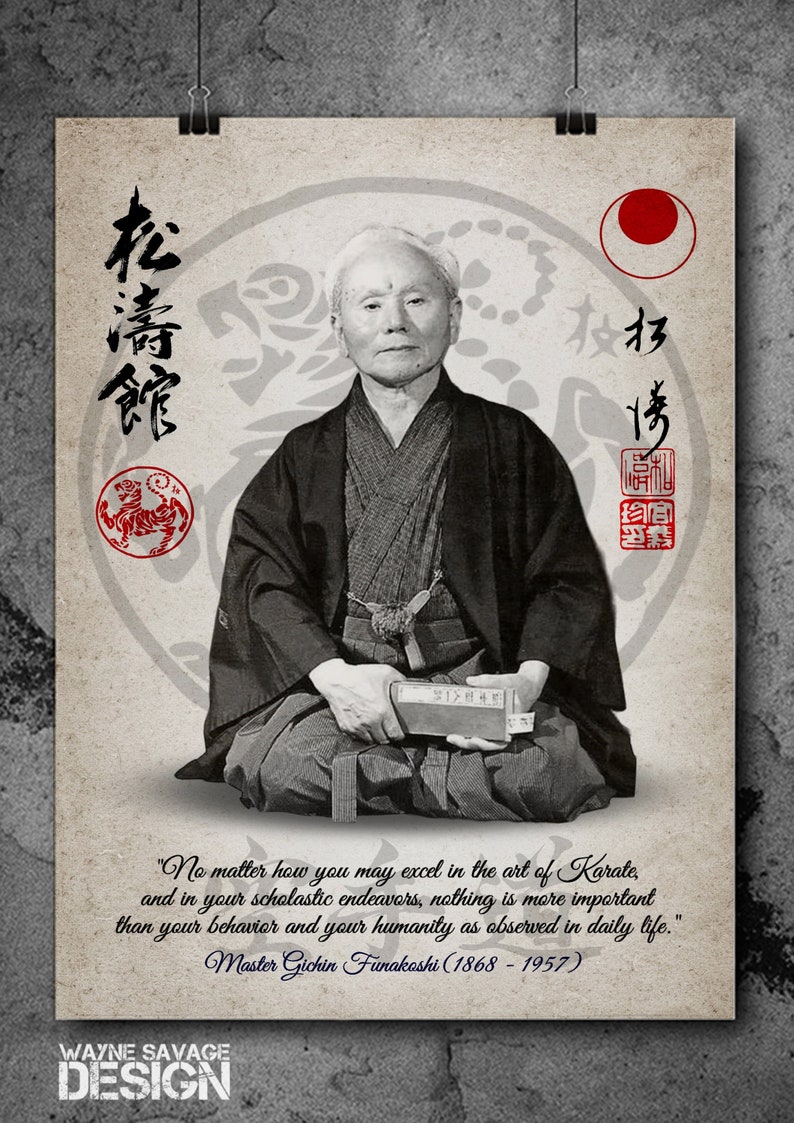 松濤館
松濤
空手道
"No matter how you may excel in the art of Karate,
and in your scholastic endeavors, nothing is more important
than your behavior and your humanity as observed in daily life."
Master Gichin Funakoshi (1868 - 1957)
WAYNE SAVAGE
DESIGN